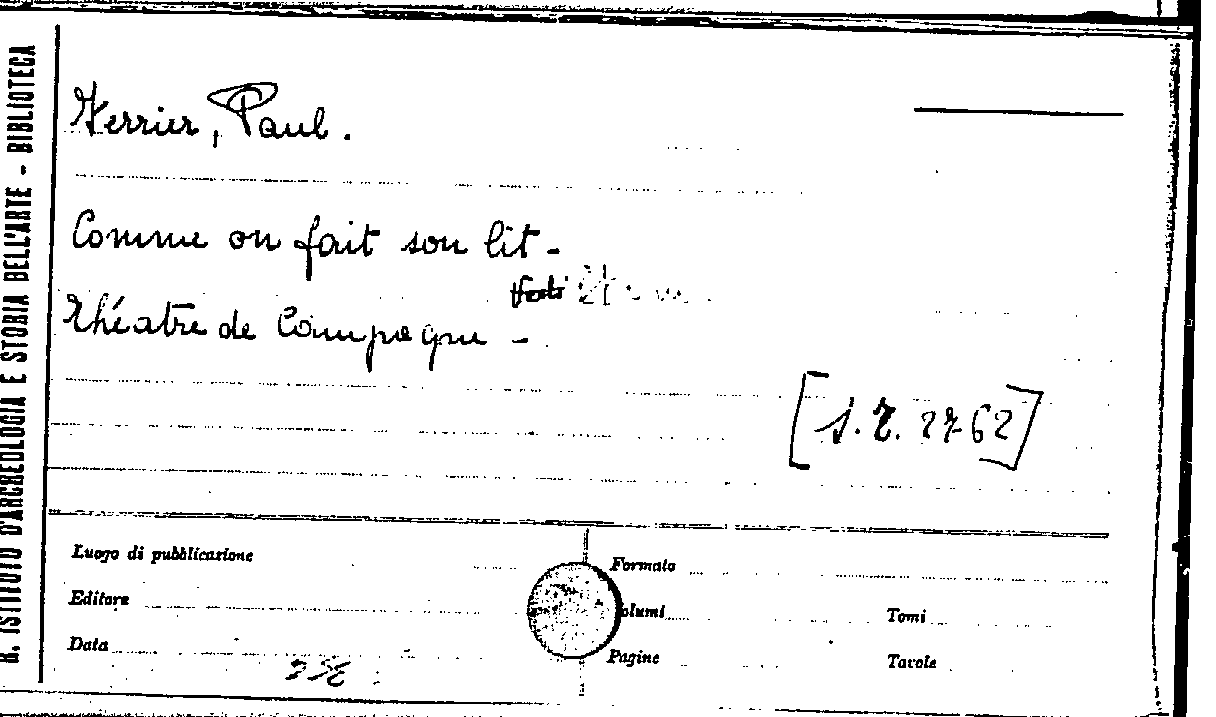 R. ISTITUTO D'ARCHEOLOGIA E STORIA DELL'ARTE - BIBLIOTECA
Ferrier, Paul.
Comme on fait son lit -
Théatre de Campagne -
[S. T. 2762]
Luogo di pubblicazione
Formato
Editore
Volumi
Tomi
Data
Pagine
Tavole